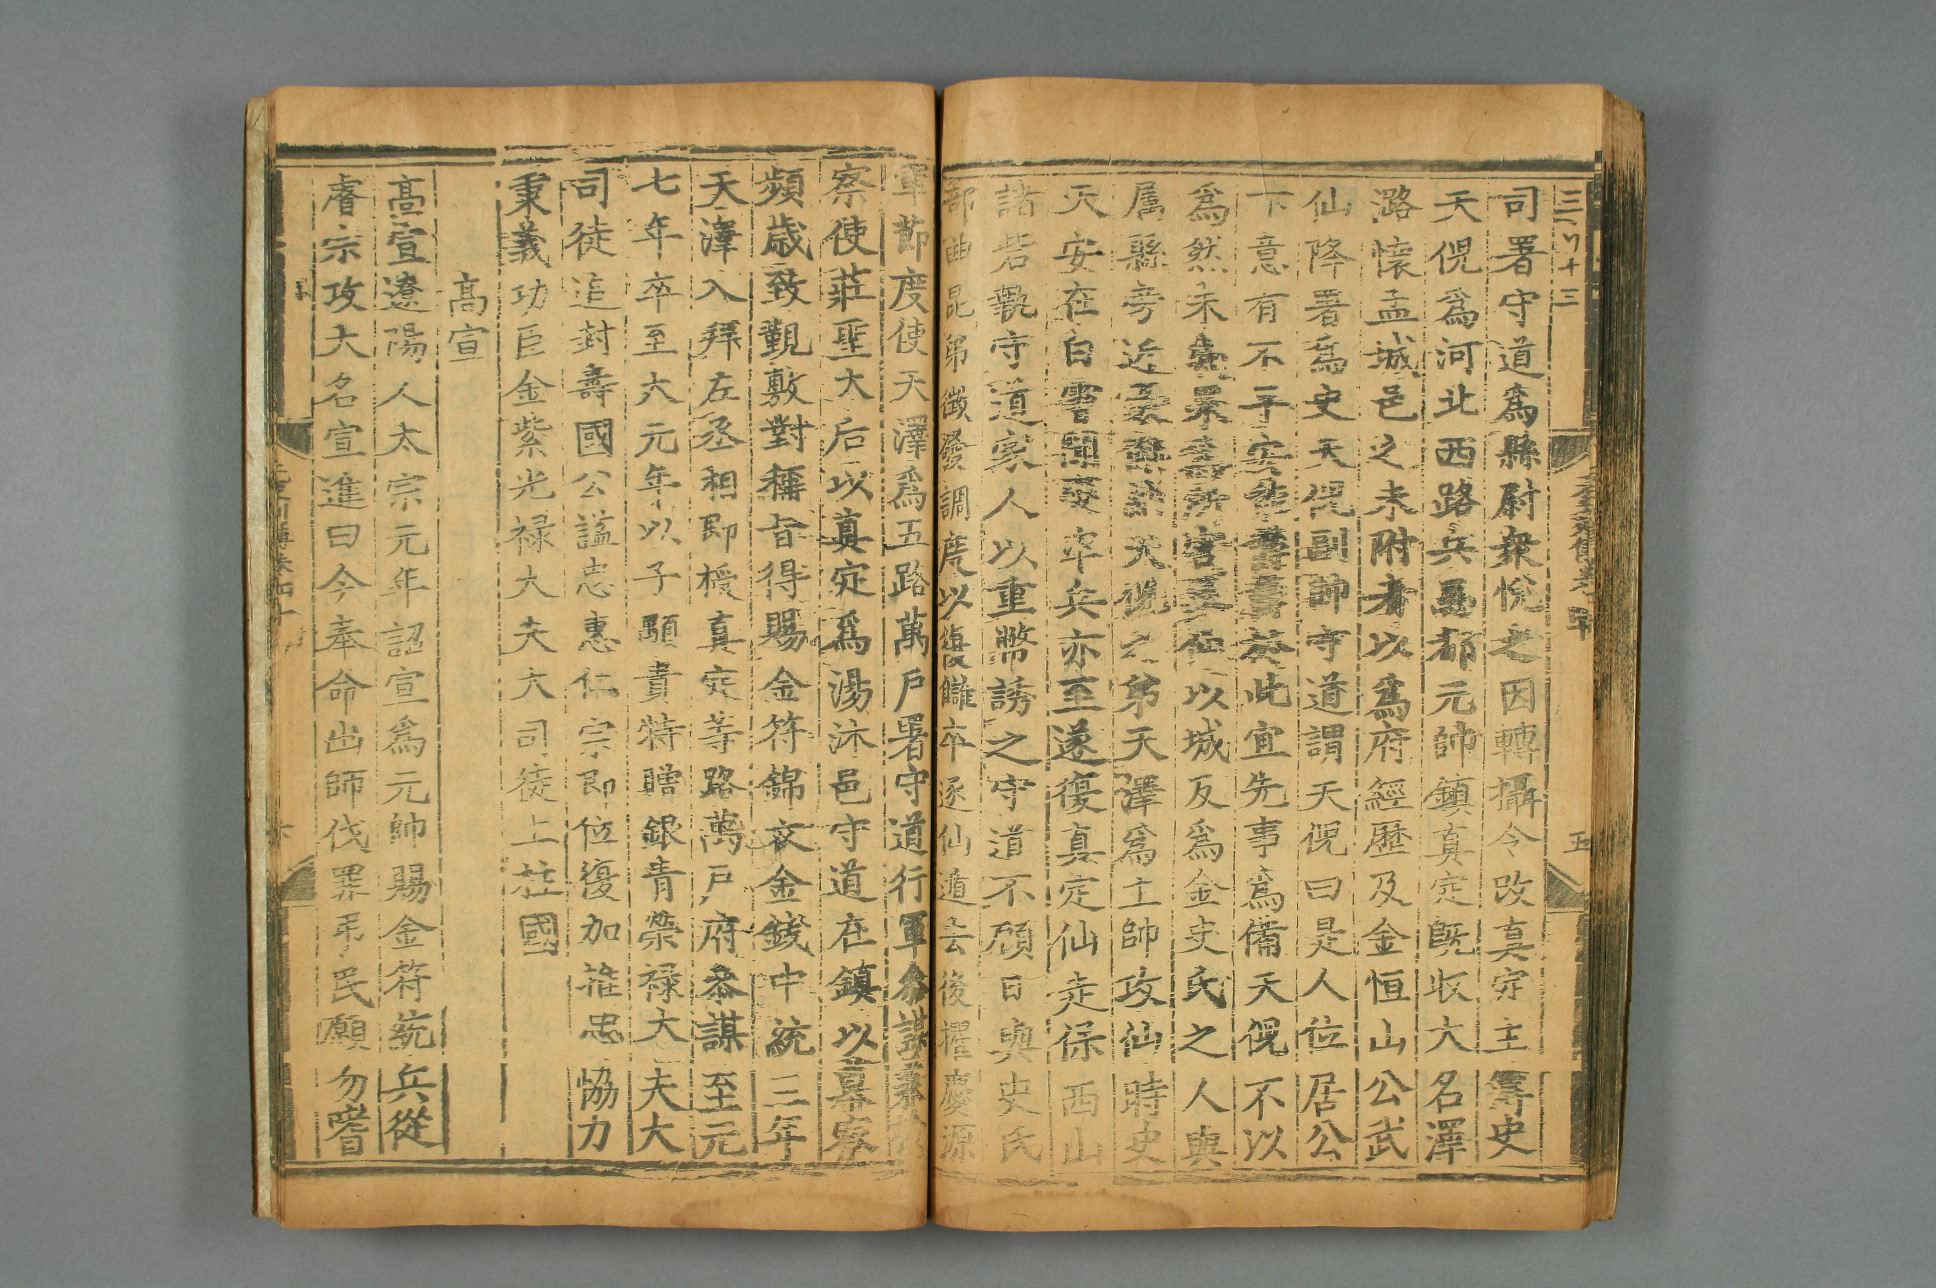 司署守道爲縣尉衆悅之因轉攝令改真定主簿史
天倪爲河北西路兵馬都元帥鎮真定旣收大名澤
潞懷孟城邑之未附者以爲府經歷及金恒山公武
仙降署爲史天倪副帥守道謂天倪曰是人位居公
下意有不平安能鬱鬱於此宜先事爲備天倪不以
爲然未幾果爲所害仙以城反爲金史氏之人與
属縣旁近豪天倪之弟天澤爲主帥攻仙時史
天安在白霫聞變率兵亦至遂復真定仙走保西山
諸砦甄守道家人以重幣誘之守道不顧曰與史氏
部曲昆弟徵發調度以復讎卒逐仙遁去後擢慶源
軍節度使天澤爲五路萬戶署守道行軍叅謀兼
察使莊聖大后以真定爲湯沐邑守道在鎮以幕寮
頻歲致覲敷對稱旨得賜金符錦衣金錢中統三年
天澤入拜左丞相即授真定等路萬戶府叅謀至元
七年卒至大元年以子顒貴特贈銀青榮祿大夫大
司徒追封壽國公謚忠惠仁宗即位復加推忠恊力
秉義功臣金紫光祿大夫大司徒上柱國
高宣
高宣遼陽人太宗元年詔宣爲元帥賜金符統兵從
睿宗攻大名宣進曰今奉命出師伐罪弔民願勿嗜